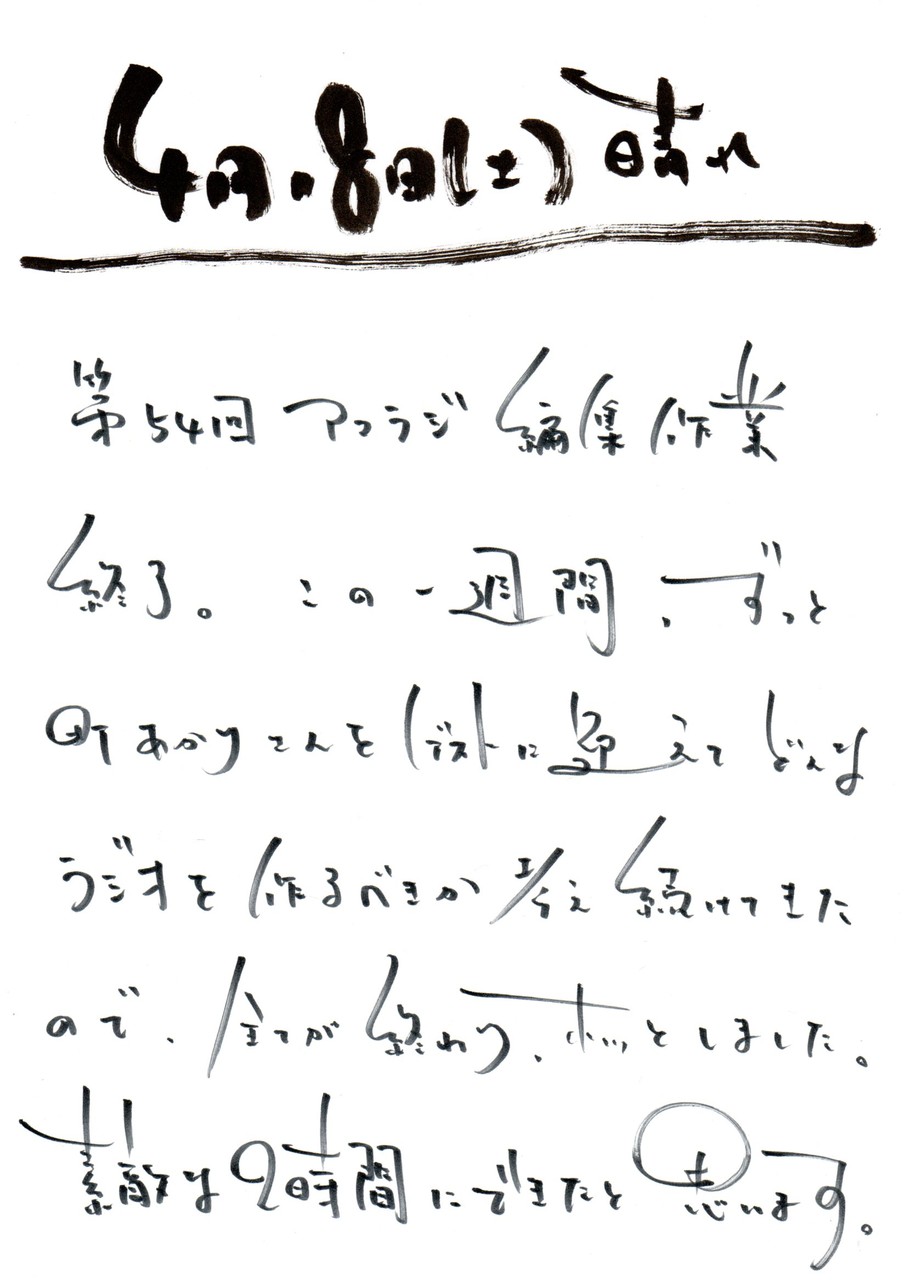 4月8日(土) 晴れ
第54回 アコラジ 編集作業
終了。 この一週間、ずっと
町あかりさんをゲストに迎えてどんな
ラジオを作るべきか考え続けてきた
ので、全てが終わり、ホッとしました。
素敵な2時間にできたと思います。